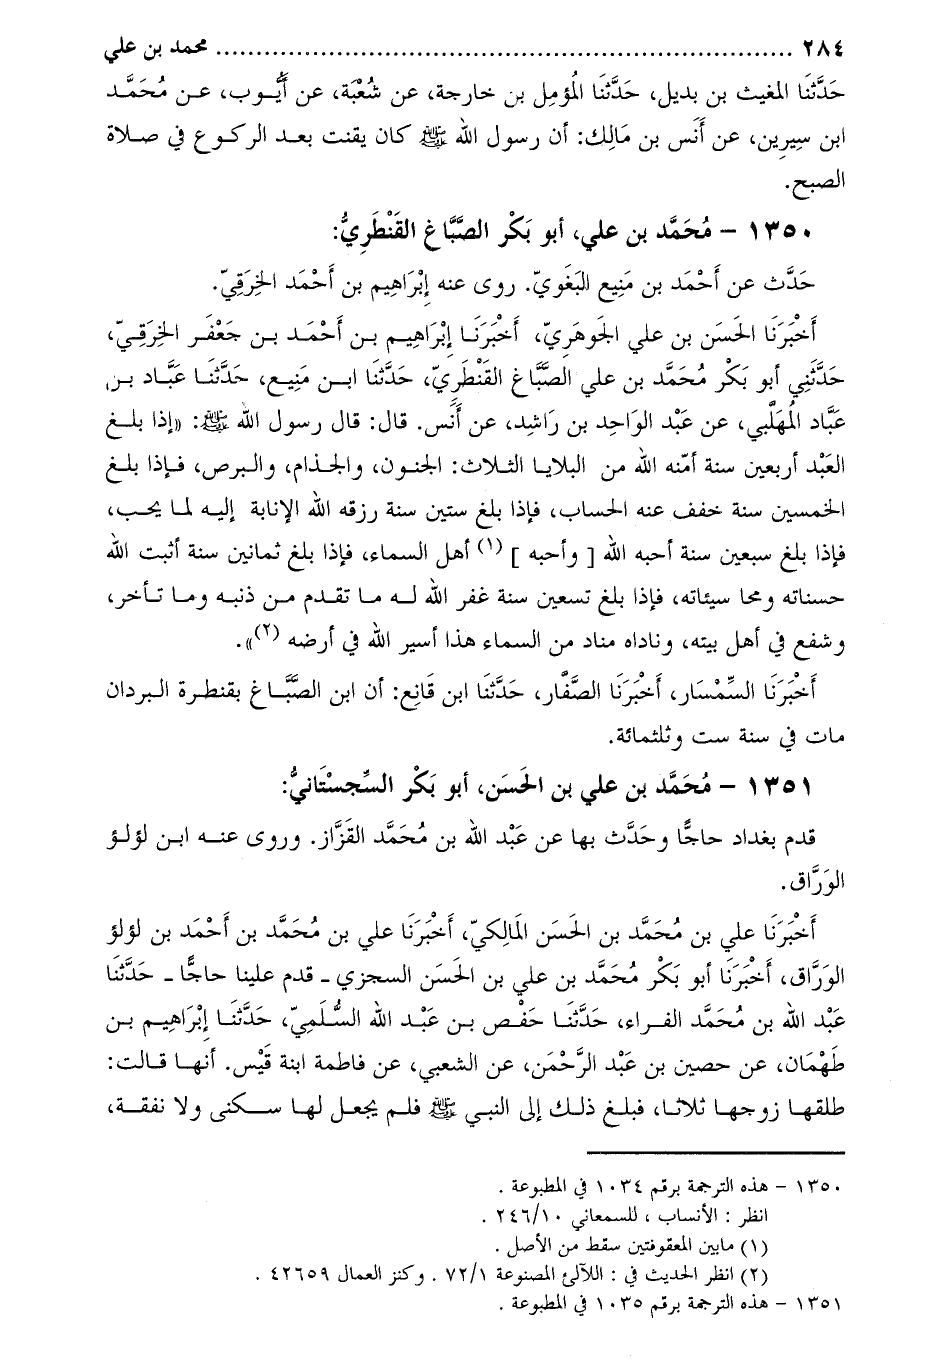 ٢٨٤ ........................................................................ محمد بن علي
حَدَّثنَا المغيث بن بديل، حَدَّثنَا المُؤمِل بن خارجة، عن شُعْبَة، عن أَيُّوب، عـن مُحَمَّد
ابن سِيرِين، عن أَنَس بن مَالِك: أن رسول الله ﷺ كان يقنت بعد الركوع في صلاة
الصبح.
١٣٥٠ - مُحَمَّد بن علي، أبو بَكْر الصَّبَّاغ القَنْطَرِيُّ:
حَدَّث عن أَحْمَد بن مَنِيع البَغَويّ. روى عنه إِبْرَاهِيم بن أَحْمَد الخِرَقِيّ.
أَخْبَرَنَا الحَسَن بن علي الجَوهَرِيّ، أَخْبَرَنَا إِبْرَاهِيم بن أَحْمَد بن جَعْفَر الخِرَقِيّ،
حَدَّثَنِي أبو بَكْر مُحَمَّد بن علي الصَّبَّاغ القَنْطَرِيّ، حَدَّثَنَا ابن مَنِيع، حَدَّثَنَا عَبَّاد بن
عَبَّاد المُهَلَّبِي، عن عَبْد الوَاحِد بن رَاشِد، عن أَنَس. قال: قال رسول الله ﷺ: «إذا بلغ
العَبْد أربعين سنة أمّنه الله من البلايا الثلاث: الجنون، والجذام، والبرص، فإذا بلغ
الخمسين سنة خفف عنه الحساب، فإذا بلغ ستين سنة رزقه الله الإنابة إليه لما يحب،
فإذا بلغ سبعين سنة أحبه الله [ وأحبه ] (١) أهل السماء، فإذا بلغ ثمانين سنة أثبت الله
حسناته ومحا سيئاته، فإذا بلغ تسعين سنة غفر الله له ما تقدم من ذنبه وما تأخر،
وشفع في أهل بيته، وناداه مناد من السماء هذا أسير الله في أرضه (٢)».
أَخْبَرَنَا السِّمْسَار، أَخْبَرَنَا الصَّفَّار، حَدَّثَنَا ابن قَانِع: أن ابن الصَّبَّاغ بقنطرة البردان
مات في سنة ست وثلثمائة.
١٣٥١ - مُحَمَّد بن علي بن الحَسَن، أبو بَكْر السِّجِسْتَانيُّ:
قدم بغداد حاجًّا وحَدَّث بها عن عَبْد الله بن مُحَمَّد القَزَّاز. وروى عنه ابن لؤلؤ
الوَرَّاق.
أَخْبَرَنَا علي بن مُحَمَّد بن الحَسَن المَالِكيّ، أَخْبَرَنَا علي بن مُحَمَّد بن أَحْمَد بن لؤلؤ
الوَرَّاق، أَخْبَرَنَا أبو بَكْر مُحَمَّد بن علي بن الحَسَن السجزي ـ قدم علينا حاجًّا ـ حَدَّثَنَا
عَبْد الله بن مُحَمَّد الفراء، حَدَّثَنَا حَفْص بن عَبْد الله السُّلَمِيّ، حَدَّثَنَا إِبْرَاهِيم بن
طَهْمَان، عن حصين بن عَبْد الرَّحْمَن، عن الشعبي، عن فاطمة ابنة قَيْس. أنها قالت:
طلقها زوجها ثلاثا، فبلغ ذلك إلى النبي ﷺ فلم يجعل لها سكنى ولا نفقة،
١٣٥٠ - هذه الترجمة برقم ١٠٣٤ في المطبوعة .
انظر : الأنساب ، للسمعاني ٢٤٦/١٠ .
(١) مابين المعقوفتين سقط من الأصل .
(٢) انظر الحديث في : اللآلئ المصنوعة ٧٢/١ . وكنز العمال ٤٢٦٥٩ .
١٣٥١ - هذه الترجمة برقم ١٠٣٥ في المطبوعة .